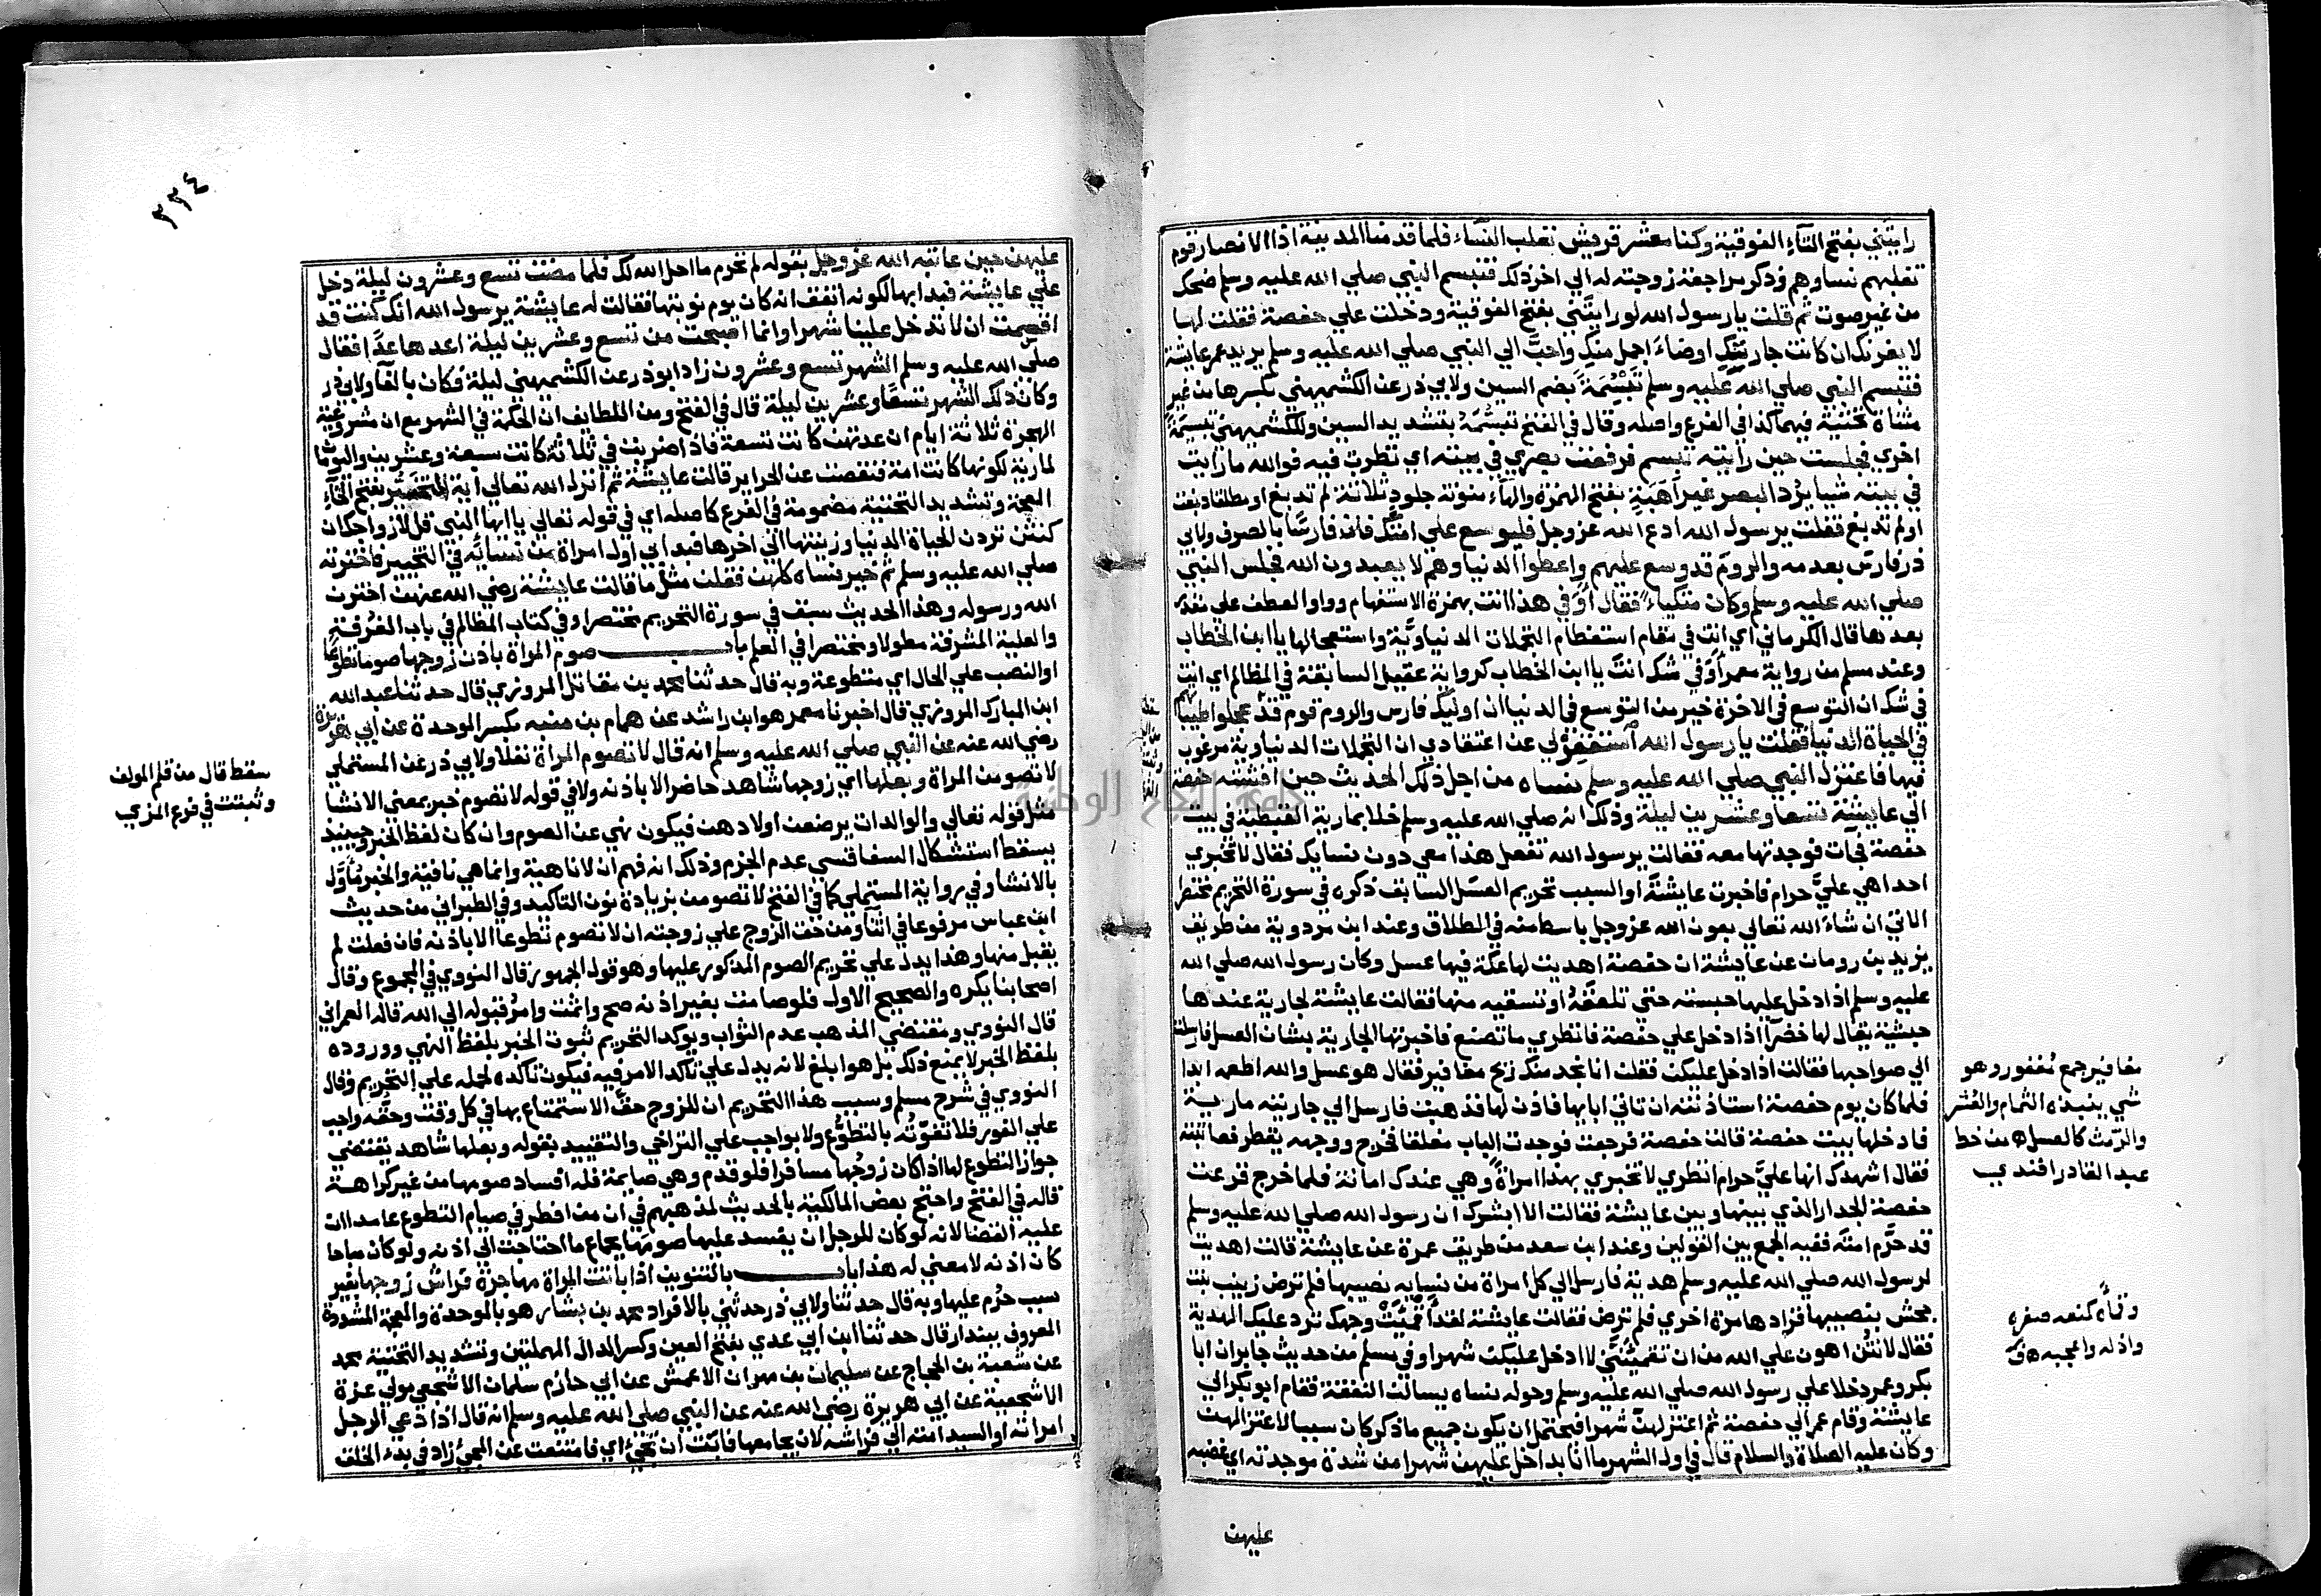 رايتني بفتح التآء الفوقية وكنا معشر قريش نغلب النسآء فلما قدمنا المدينة اذا الانصار قوم
تغلبهم نساوهم فذكر مراجعة زوجته له الي اخر ذلك فتبسم النبي صلي الله عليه وسلم ضحك
من غير صوت ثم قلت يا رسول الله لو رايتني بفتح الفوقية ودخلت علي حفصة فقلت لها
لا يغرنك ان كانت جارتك اوضاء اجمل منك واحب الي النبي صلي الله عليه وسلم يريد عمر عايشة
فتبسم النبي صلي الله عليه وسلم تبسمة بضم السين ولابي ذر عن الكشميهني بكسرها من غير
مثناة تحتية فيهما كذا في الفرع واصله وقال في الفتح تبسمة بتشديد السين وللكشميهني تبسيمة
اخري فجلست حين رايته تبسم فرفعت بصري في بيته اي نظرت فيه فوالله ما رايت
في بيته شيا يرد البصر غير اهبة بفتح الهمزة والهآء منونة جلود ثلاثة لم تدبغ او مطلقا دبغت
او لم تدبغ فقلت يرسول الله ادع الله عز وجل فليوسع علي امتك فان فارسا بالصرف ولابي
ذر فارس بعدمه والروم قد وسع عليهم واعطوا الدنيا وهم لا يعبدون الله فجلس النبي
صلي الله عليه وسلم وكان متكياء فقال اوفي هذا انت بهمزة الاستفهام وواو العطف علي مقدر
بعدها قال الكرماني اي انت في مقام استعظام التجملات الدنياوية واستعجالها يا ابن الخطاب
وعند مسلم من رواية معمر اوفي شك انت يا ابن الخطاب كرواية عقيل السابقة في المظالم اي انت
في شك ان التوسع في الاخرة خير من التوسع في الدنيا ان اوليك فارس والروم قوم قد عجلوا طيباتهم
في الحياة الدنيا فقلت يا رسول الله استغفر لي عن اعتقادي ان التجملات الدنياوية مرغوب
فيها فاعتزل النبي صلي الله عليه وسلم نساه من اجل ذلك الحديث حين افشته حفصة
الي عايشة تسعا وعشرين ليلة وذلك انه صلي الله عليه وسلم خلا بمارية القبطية في بيت
حفصة فجات فوجدتها معه فقالت يرسول الله تفعل هذا معي دون نسايك فقال لا تخبري
احدا هي علي حرام فاخبرت عايشة او السبب تحريم العسل السابق ذكره في سورة التحريم مختصرا
الاتي ان شاء الله تعالي بعون الله عز وجل باسط منه في الطلاق وعند ابن مردوية من طريق
يزيد بن رومان عن عايشة ان حفصة اهديت لها عكة فيها عسل وكان رسول الله صلي الله
عليه وسلم اذا دخل عليها حبسته حتي تلعقه او تسقيه منها فقالت عايشة لجارية عندها
حبشية يقال لها خضرا اذا دخل علي حفصة فانظري ما تصنع فاخبرتها الجارية بشان العسل فارسلت
الي صواحبها فقالت اذا دخل عليكن فقلن انا نجد منك ريح مغافير فقال هو عسل والله لا اطعمه ابدا
فلما كان يوم حفصة استاذنته ان تاتي اباها فاذن لها فذهبت فارسل الي جاريته مارية
فادخلها بيت حفصة قالت حفصة فرجعت فوجدت الباب مغلقا فخرج ووجهه يقطر فعاتبته
فقال اشهدك انها علي حرام انظري لا تخبري بهذا امراة وهي عندك امانة فلما خرج قرعت
حفصة الجدار الذي بينها وبين عايشة فقالت الا ابشرك ان رسول الله صلي الله عليه وسلم
قد حرم امته ففيه الجمع بين القولين وعند ابن سعد من طريق عمرة عن عايشة قالت اهديت
لرسول الله صلي الله عليه وسلم هدية فارسل الي كل امراة من نسايه نصيبها فلم ترض زينب بنت
جحش بنصيبها فزادها مرة اخري فلم ترض فقالت عايشة لقد اقمئت وجهك ترد عليك الهدية
فقال لانتن اهون علي الله من ان تقمئنني لا ادخل عليكن شهرا وفي مسلم من حديث جابر ان ابا
بكر وعمر دخلا علي رسول الله صلي الله عليه وسلم وحوله نساه يسالنه النفقة فقام ابو بكر الي
عايشة وقام عمر الي حفصة ثم اعتزلهن شهرا فيحتمل ان يكون جميع ما ذكر كان سببا لاعتزالهن
وكان عليه الصلاة والسلام قال في اول الشهر ما انا بداخل عليهن شهرا من شدة موجدته اي غضبه
عليهن
مغافير جمع مغفور وهو
شي ينبذه الثمام والعشر
والرمث كالعسل ه من خط
عبد القادر افندي
وقمأه كمنعه صغره
واذله واعجبه ه ق
٢٢٤
عليهن حين عاتبه الله عز وجل بقوله لم تحرم ما احل الله لك فلما مضت تسع وعشرون ليلة دخل
علي عايشة فبدا بها لكونه اتفق انه كان يوم نوبتها فقالت له عايشة يرسول الله انك كنت قد
اقسمت ان لا تدخل علينا شهرا وانما اصبحت من تسع وعشرين ليلة اعدها عدا فقال
صلي الله عليه وسلم الشهر تسع وعشرون زاد ابو ذر عن الكشميهني ليلة فكان بالفآ ولابي ذر
وكان ذلك الشهر تسعا وعشرين ليلة قال في الفتح ومن اللطايف ان الحكمة في الشهر مع ان مشروعية
الهجرة ثلاثة ايام ان عدتهن كانت تسعة فاذا ضربت في ثلاثة كانت سبعة وعشرين واليومان
لمارية لكونها كانت امة فنقصت عن الحراير قالت عايشة ثم انزل الله تعالي اية التخير بفتح الخآء
المعجمة وتشديد التحتية مضمومة في الفرع كاصله اي في قوله تعالي يا ايها النبي قل لازواجك ان
كنتن تردن الحياة الدنيا وزينتها الي اخرها فبدا بي اول امراة من نسائه في التخيير فاخترته
صلي الله عليه وسلم ثم خير نساه كلهن فقلن مثل ما قالت عايشة رضي الله عنهن اخترن
الله ورسوله وهذا الحديث سبق في سورة التحريم مختصرا وفي كتاب المظالم في باب الغرفة
والعلية المشرفة مطولا ومختصرا في العلم باب صوم المراة باذن زوجها صوما تطوعا
او النصب علي الحال اي متطوعة وبه قال حدثنا محمد بن مقاتل المروزي قال حدثنا عبد الله
ابن المبارك المروزي قال اخبرنا معمر هو ابن راشد عن همام بن منبه بكسر الموحدة عن ابي هريرة
رضي الله عنه عن النبي صلي الله عليه وسلم انه قال لا تصوم المراة نفلا ولابي ذر عن المستملي
لا تصومن المراة وبعلها اي زوجها شاهد حاضر الا باذنه ولا في قوله لا تصوم خبر بمعني الانشا
مثل قوله تعالي والوالدات يرضعن اولادهن فيكون نهي عن الصوم وان كان لفظ الخبر وحينيذ
يسقط استشكال السفاقسي عدم الجزم وذلك انه فهم ان لا ناهية وانما هي نافية والخبر مأول
بالانشا وفي رواية المستملي كما في الفتح لا تصومن بزيادة نون التاكيد وفي الطبراني من حديث
ابن عباس مرفوعا في اثنآ ومن حق الزوج علي زوجته ان لا تصوم تطوعا الا باذنه فان فعلت لم
يقبل منها وهذا يدل علي تحريم الصوم المذكور عليها وهو قول الجمهور قال النووي في المجموع وقال
اصحابنا يكره والصحيح الاول فلو صامت بغير اذنه صح واثمت وامر قبوله الي الله قاله العمراني
قال النووي ومقتضي المذهب عدم الثواب ويوكد التحريم ثبوت الخبر بلفظ النهي ووروده
بلفظ الخبر لا يمنع ذلك بل هو ابلغ لانه يدل علي تاكد الامر فيه فيكون تاكده لحمله علي التحريم وقال
النووي في شرح مسلم وسبب هذا التحريم ان للزوج حق الاستمتاع بها في كل وقت وحقه واجب
علي الفور فلا تفوته بالتطوع ولا بواجب علي التراخي والتقييد بقوله وبعلها شاهد يقتضي
جواز التطوع لها اذا كان زوجها مسافرا فلو قدم وهي صايمة فله افساد صومها من غير كراهة
قاله في الفتح واحتج بعض المالكية بالحديث لمذهبهم في ان من افطر في صيام التطوع عامدا ان
عليه القضا لانه لو كان للرجل ان يفسد عليها صومها بجماع ما احتاجت الي اذنه ولو كان مباحا
كان اذنه لا معني له هذا باب بالتنوين اذا باتت المراة مهاجرة فراش زوجها بغير
سبب حرم عليها وبه قال حدثنا ولابي ذر حدثني بالافراد محمد بن بشار هو بالموحدة والمعجمة المشددة
المعروف ببندار قال حدثنا ابن ابي عدي بفتح العين وكسر الدال المهملتين وتشديد التحتية محمد
عن شعبة بن الحجاج عن سليمان بن مهران الاعمش عن ابي حازم سلمان الاشجعي مولي عزة
الاشجعية عن ابي هريرة رضي الله عنه عن النبي صلي الله عليه وسلم انه قال اذا دعي الرجل
امراته او السيد امته الي فراشه لان يجامعها فابت ان تجيء اي فامتنعت عن المجيء زاد في بدء الخلق
سقط قال من قلم المولف
وثبتت في فرع المزي
جامعة النجاح الوطنية